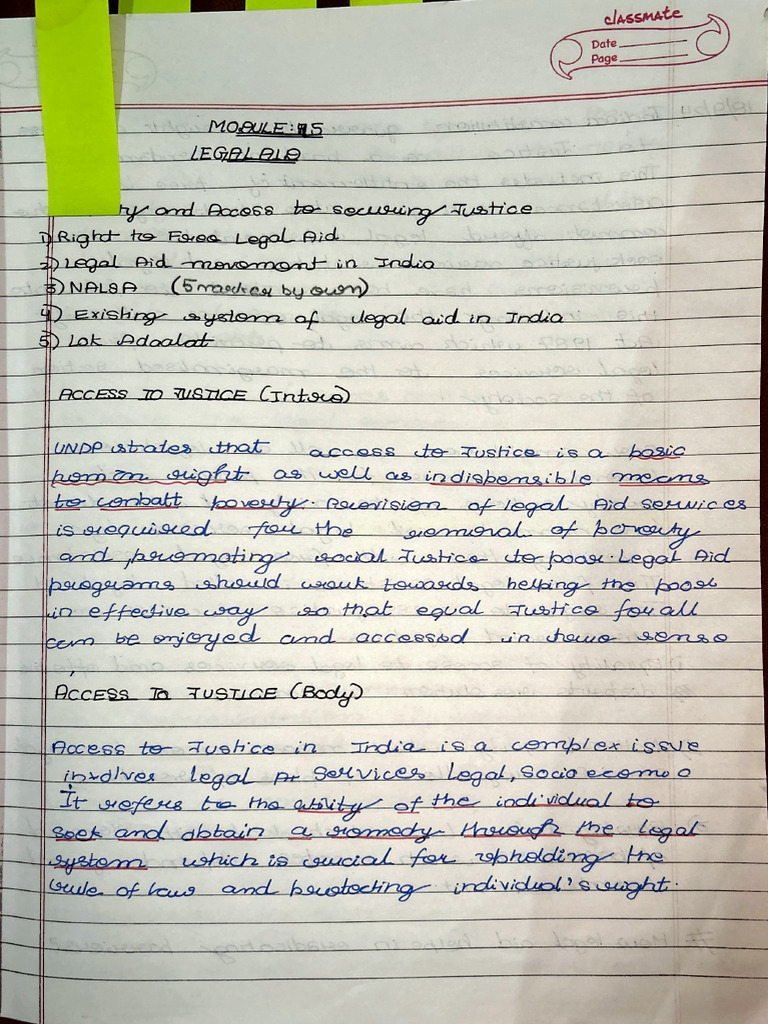 classmate
Date
Page
MODULE: 5
LEGAL AID
ty and Access to securing Justice
1) Right to Free Legal Aid
2) Legal Aid movement in India
3) NALSA (5 marker by own)
4) Existing system of legal aid in India
5) Lok Adaalat
ACCESS TO JUSTICE (Intro)
UNDP states that access to Justice is a basic
human right as well as indispensible means
to combatt poverty. Provision of legal Aid services
is required for the removal of poverty
and promoting social Justice to poor. Legal Aid
programs should work towards helping the poor
in effective way so that equal Justice for all
can be enjoyed and accessed in true sense
ACCESS TO JUSTICE (Body)
Access to Justice in India is a complex issue
involves legal services Legal, Socio econo
It refers to the ability of the individual to
seek and obtain a remedy through the legal
system which is crucial for upholding the
rule of law and protecting individual's right.